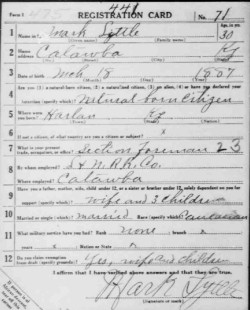 Form 1 441
REGISTRATION CARD No. 71
1 Name in full Mark Little Age, in yrs. 30
(Given name) (Family name)
2 Home address Catawba Ky
3 Date of birth Mch 18 1887
(Month) (Day) (Year)
4 Are you (1) a natural-born citizen, (2) a naturalized citizen, (3) an alien, (4) or have you declared your intention (specify which)? Natural born Citizen
5 Where were you born? Harlan Ky
6 If not a citizen, of what country are you a citizen or subject? x
7 What is your present trade, occupation, or office? Section Foreman 23
8 By whom employed? L & N. R.R. Co.
Where employed? Catawba
9 Have you a father, mother, wife, child under 12, or a sister or brother under 12, solely dependent on you for support (specify which)? Wife and 3 children
10 Married or single (which)? married Race (specify which)? Caucasian
11 What military service have you had? Rank none ; branch x
years x Nation or State x
12 Do you claim exemption from draft (specify grounds)? Yes, wife and children
I affirm that I have verified above answers and that they are true.
Mark Little
(Signature or mark)